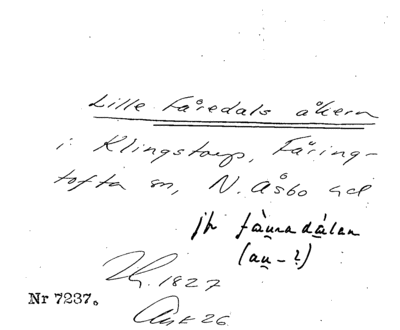 Lille Fåredals åkern
i Klingstorp, Färing-
tofta sn, N. Åsbo hd
jfr fàuradálan
(au-?)
1827
Nr 7237.
26